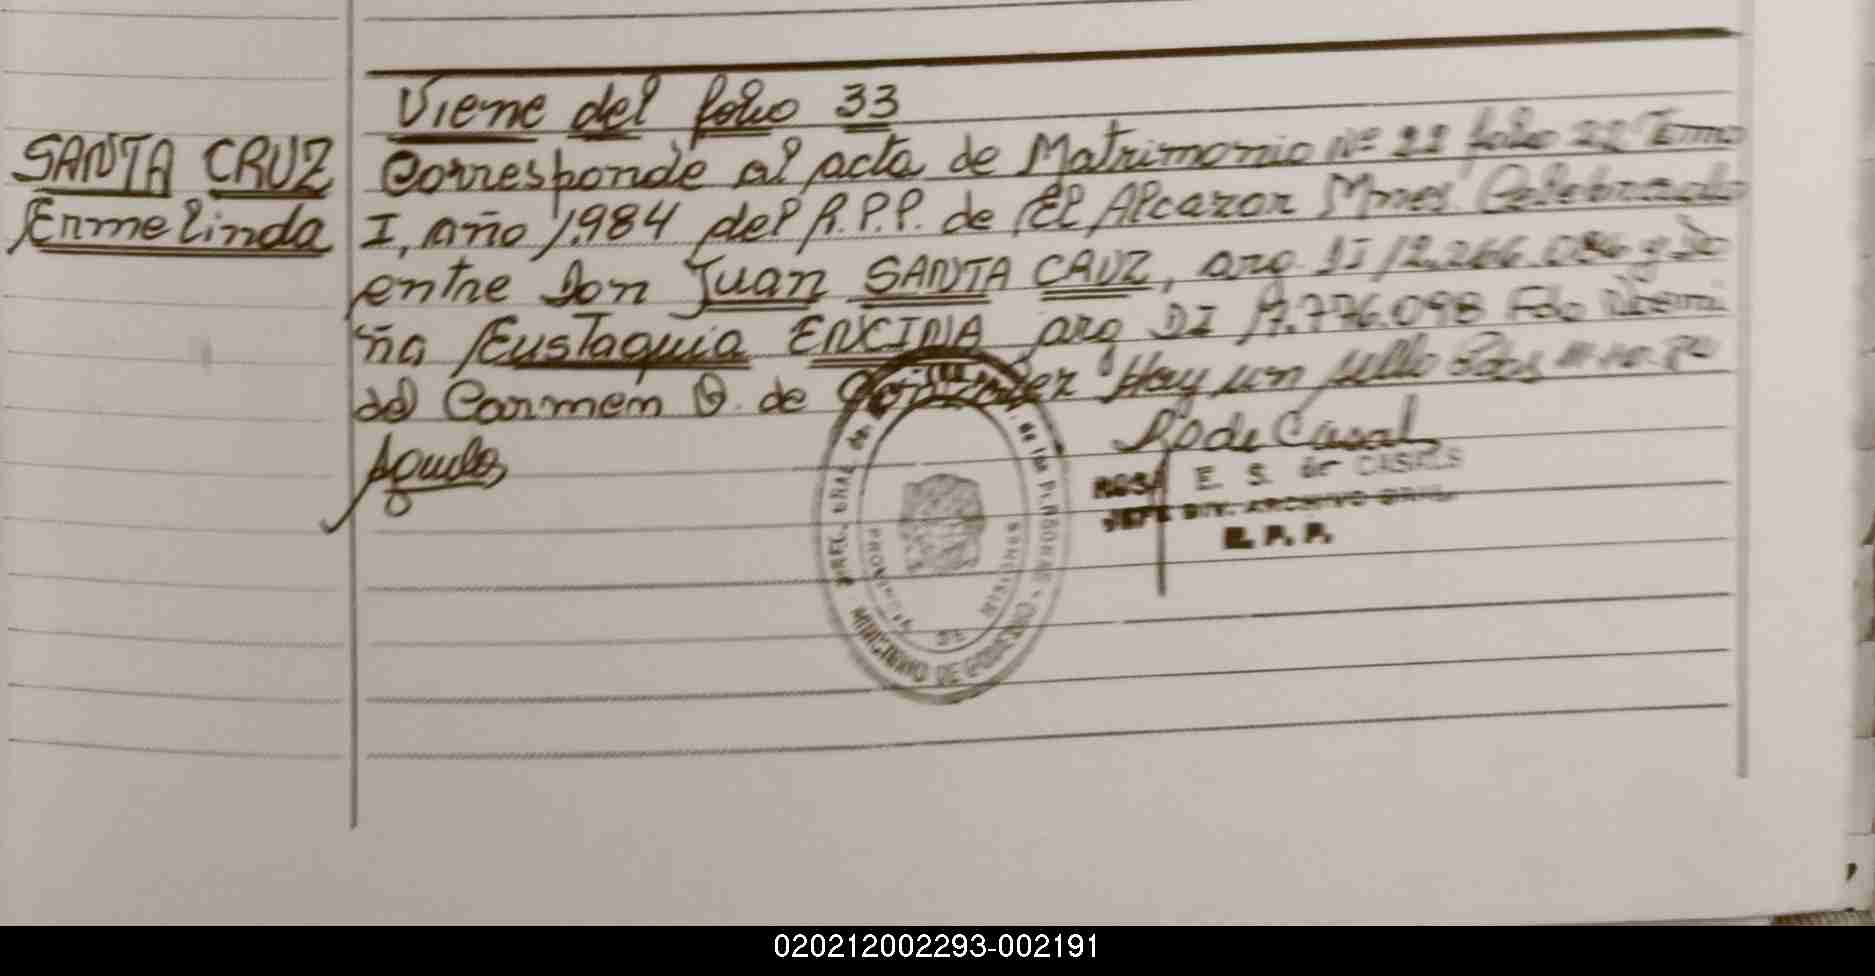 Viene del folio 33
SANTA CRUZ
Ermelinda
Corresponde al acta de Matrimonio Nº 22 folio 22 Tomo
I, año 1.984 del R.P.P. de El Alcazar Mnes. Celebrado
entre Don Juan SANTA CRUZ, arg. DI 12.266.094 y Do
ña Eustaquia ENCINA arg DI 17.776.098 Fdo Noemi
del Carmen O. de Hay un sello Pdas
Rode Casal
ROSA E. S. de CASALS
JEFE DIV. ARCHIVO GRAL.
R. P. P.
GRAL. de las PERSONAS
PROVINCIA DE MISIONES
MINISTERIO DE GOBIERNO
020212002293-002191